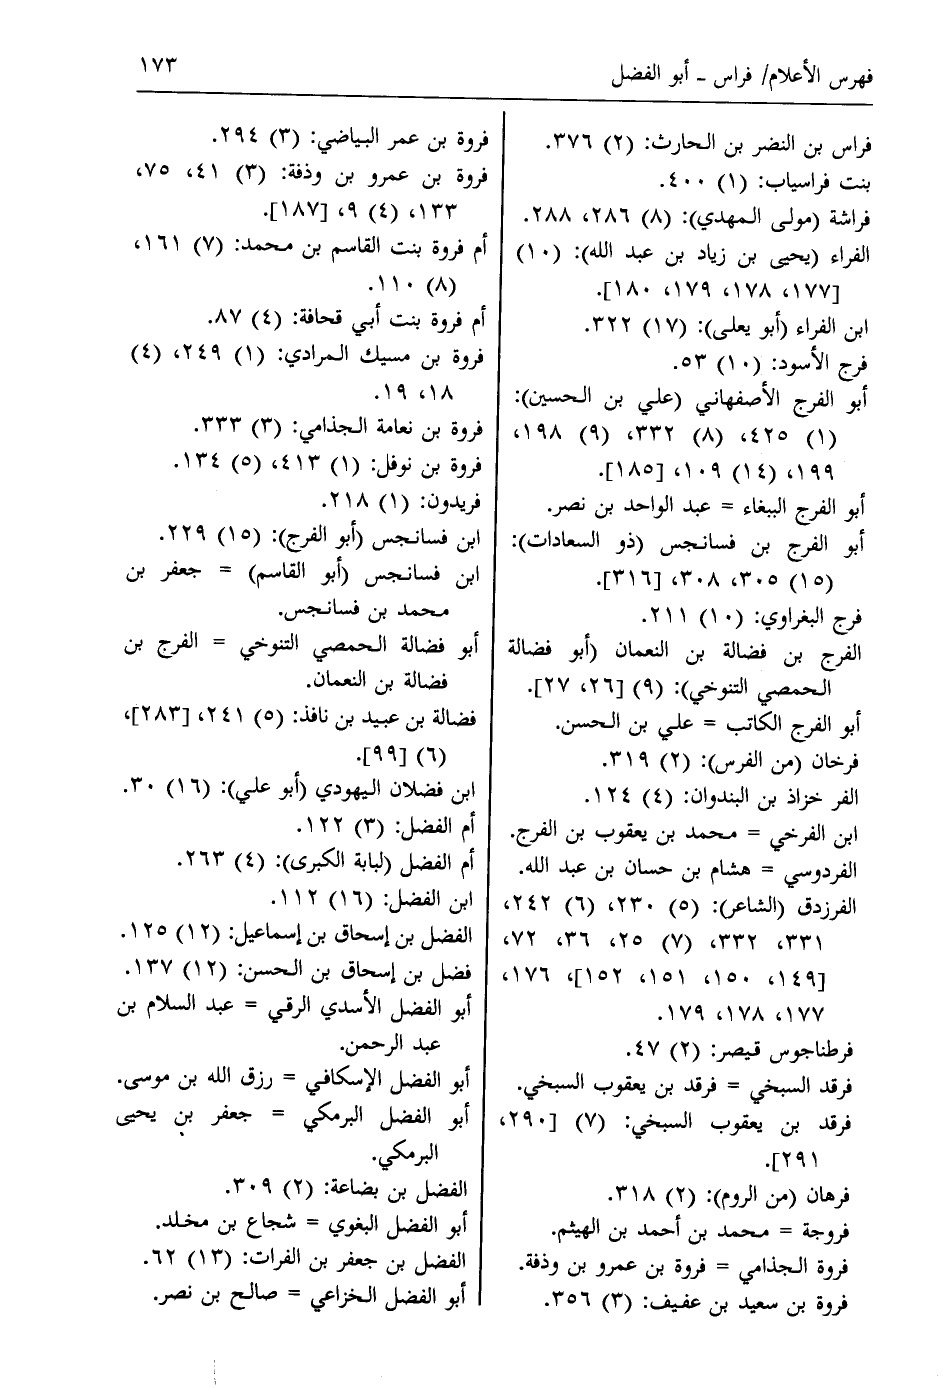 فهرس الأعلام/ فراس ـ أبو الفضل
١٧٣
فراس بن النضر بن الحارث: (٢) ٣٧٦.
بنت فراسياب: (١) ٤٠٠.
فراشة (مولى المهدي): (٨) ٢٨٦، ٢٨٨.
الفراء (يحيى بن زياد بن عبد الله): (١٠)
[١٧٧، ١٧٨، ١٧٩، ١٨٠].
ابن الفراء (أبو يعلى): (١٧) ٣٢٢.
فرج الأسود: (١٠) ٥٣.
أبو الفرج الأصفهاني (علي بن الحسين):
(١) ٤٢٥، (٨) ٣٣٢، (٩) ١٩٨،
١٩٩، (١٤) ١٠٩، [١٨٥].
أبو الفرج الببغاء = عبد الواحد بن نصر.
أبو الفرج بن فسانجس (ذو السعادات):
(١٥) ٣٠٥، ٣٠٨، [٣١٦].
فرج البغراوي: (١٠) ٢١١.
الفرج بن فضالة بن النعمان (أبو فضالة
الحمصي التنوخي): (٩) [٢٦، ٢٧].
أبو الفرج الكاتب = علي بن الحسن.
فرخان (من الفرس): (٢) ٣١٩.
الفر خزاذ بن البندوان: (٤) ١٢٤.
ابن الفرخي = محمد بن يعقوب بن الفرج.
الفردوسي = هشام بن حسان بن عبد الله.
الفرزدق (الشاعر): (٥) ٢٣٠، (٦) ٢٤٢،
٣٣١، ٣٣٢، (٧) ٢٥، ٣٦، ٧٢،
[١٤٩، ١٥٠، ١٥١، ١٥٢]، ١٧٦،
١٧٧، ١٧٨، ١٧٩.
فرطناجوس قيصر: (٢) ٤٧.
فرقد السبخي = فرقد بن يعقوب السبخي.
فرقد بن يعقوب السبخي: (٧) [٢٩٠،
٢٩١].
فرهان (من الروم): (٢) ٣١٨.
فروجة = محمد بن أحمد بن الهيثم.
فروة الجذامي = فروة بن عمرو بن وذفة.
فروة بن سعيد بن عفيف: (٣) ٣٥٦.
فروة بن عمر البياضي: (٣) ٢٩٤.
فروة بن عمرو بن وذفة: (٣) ٤١، ٧٥،
١٣٣، (٤) ٩، [١٨٧].
أم فروة بنت القاسم بن محمد: (٧) ١٦١،
(٨) ١١٠.
أم فروة بنت أبي قحافة: (٤) ٨٧.
فروة بن مسيك المرادي: (١) ٢٤٩، (٤)
١٨، ١٩.
فروة بن نعامة الجذامي: (٣) ٣٣٣.
فروة بن نوفل: (١) ٤١٣، (٥) ١٣٤.
فريدون: (١) ٢١٨.
ابن فسانجس (أبو الفرج): (١٥) ٢٢٩.
ابن فسانجس (أبو القاسم) = جعفر بن
محمد بن فسانجس.
أبو فضالة الحمصي التنوخي = الفرج بن
فضالة بن النعمان.
فضالة بن عبيد بن نافذ: (٥) ٢٤١، [٢٨٣]،
(٦) [٩٩].
ابن فضلان اليهودي (أبو علي): (١٦) ٣٠.
أم الفضل: (٣) ١٢٢.
أم الفضل (لبابة الكبرى): (٤) ٢٦٣.
ابن الفضل: (١٦) ١١٢.
الفضل بن إسحاق بن إسماعيل: (١٢) ١٢٥.
فضل بن إسحاق بن الحسن: (١٢) ١٣٧.
أبو الفضل الأسدي الرقي = عبد السلام بن
عبد الرحمن.
أبو الفضل الإسكافي = رزق الله بن موسى.
أبو الفضل البرمكي = جعفر بن يحيى
البرمكي.
الفضل بن بضاعة: (٢) ٣٠٩.
أبو الفضل البغوي = شجاع بن مخلد.
الفضل بن جعفر بن الفرات: (١٣) ٦٢.
أبو الفضل الخزاعي = صالح بن نصر.